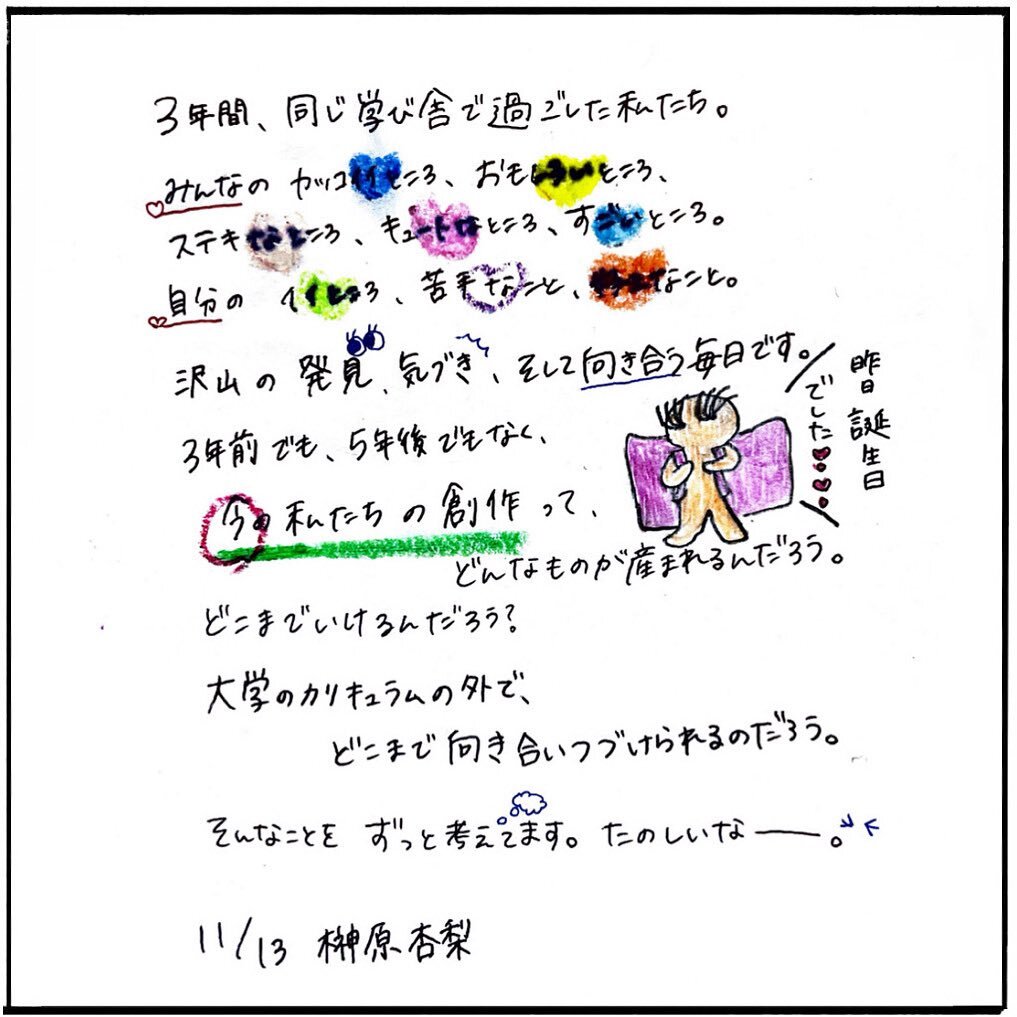 3年間、同じ学び舎で過ごした私たち。
みんなの カッコイイところ、おもしろいところ、
ステキなところ、キュートなところ、すごいところ。
自分の イイところ、苦手なこと、なこと。
沢山の 発見、気づき、そして向き合う毎日です。
昨日誕生日
でした
3年前でも、5年後でもなく、
今の 私たちの 創作って、
どんなものが産まれるんだろう。
どこまでいけるんだろう?
大学のカリキュラムの外で、
どこまで向き合いつづけられるのだろう。
そんなことを ずっと考えてます。たのしいなー。
11/13 榊原杏梨